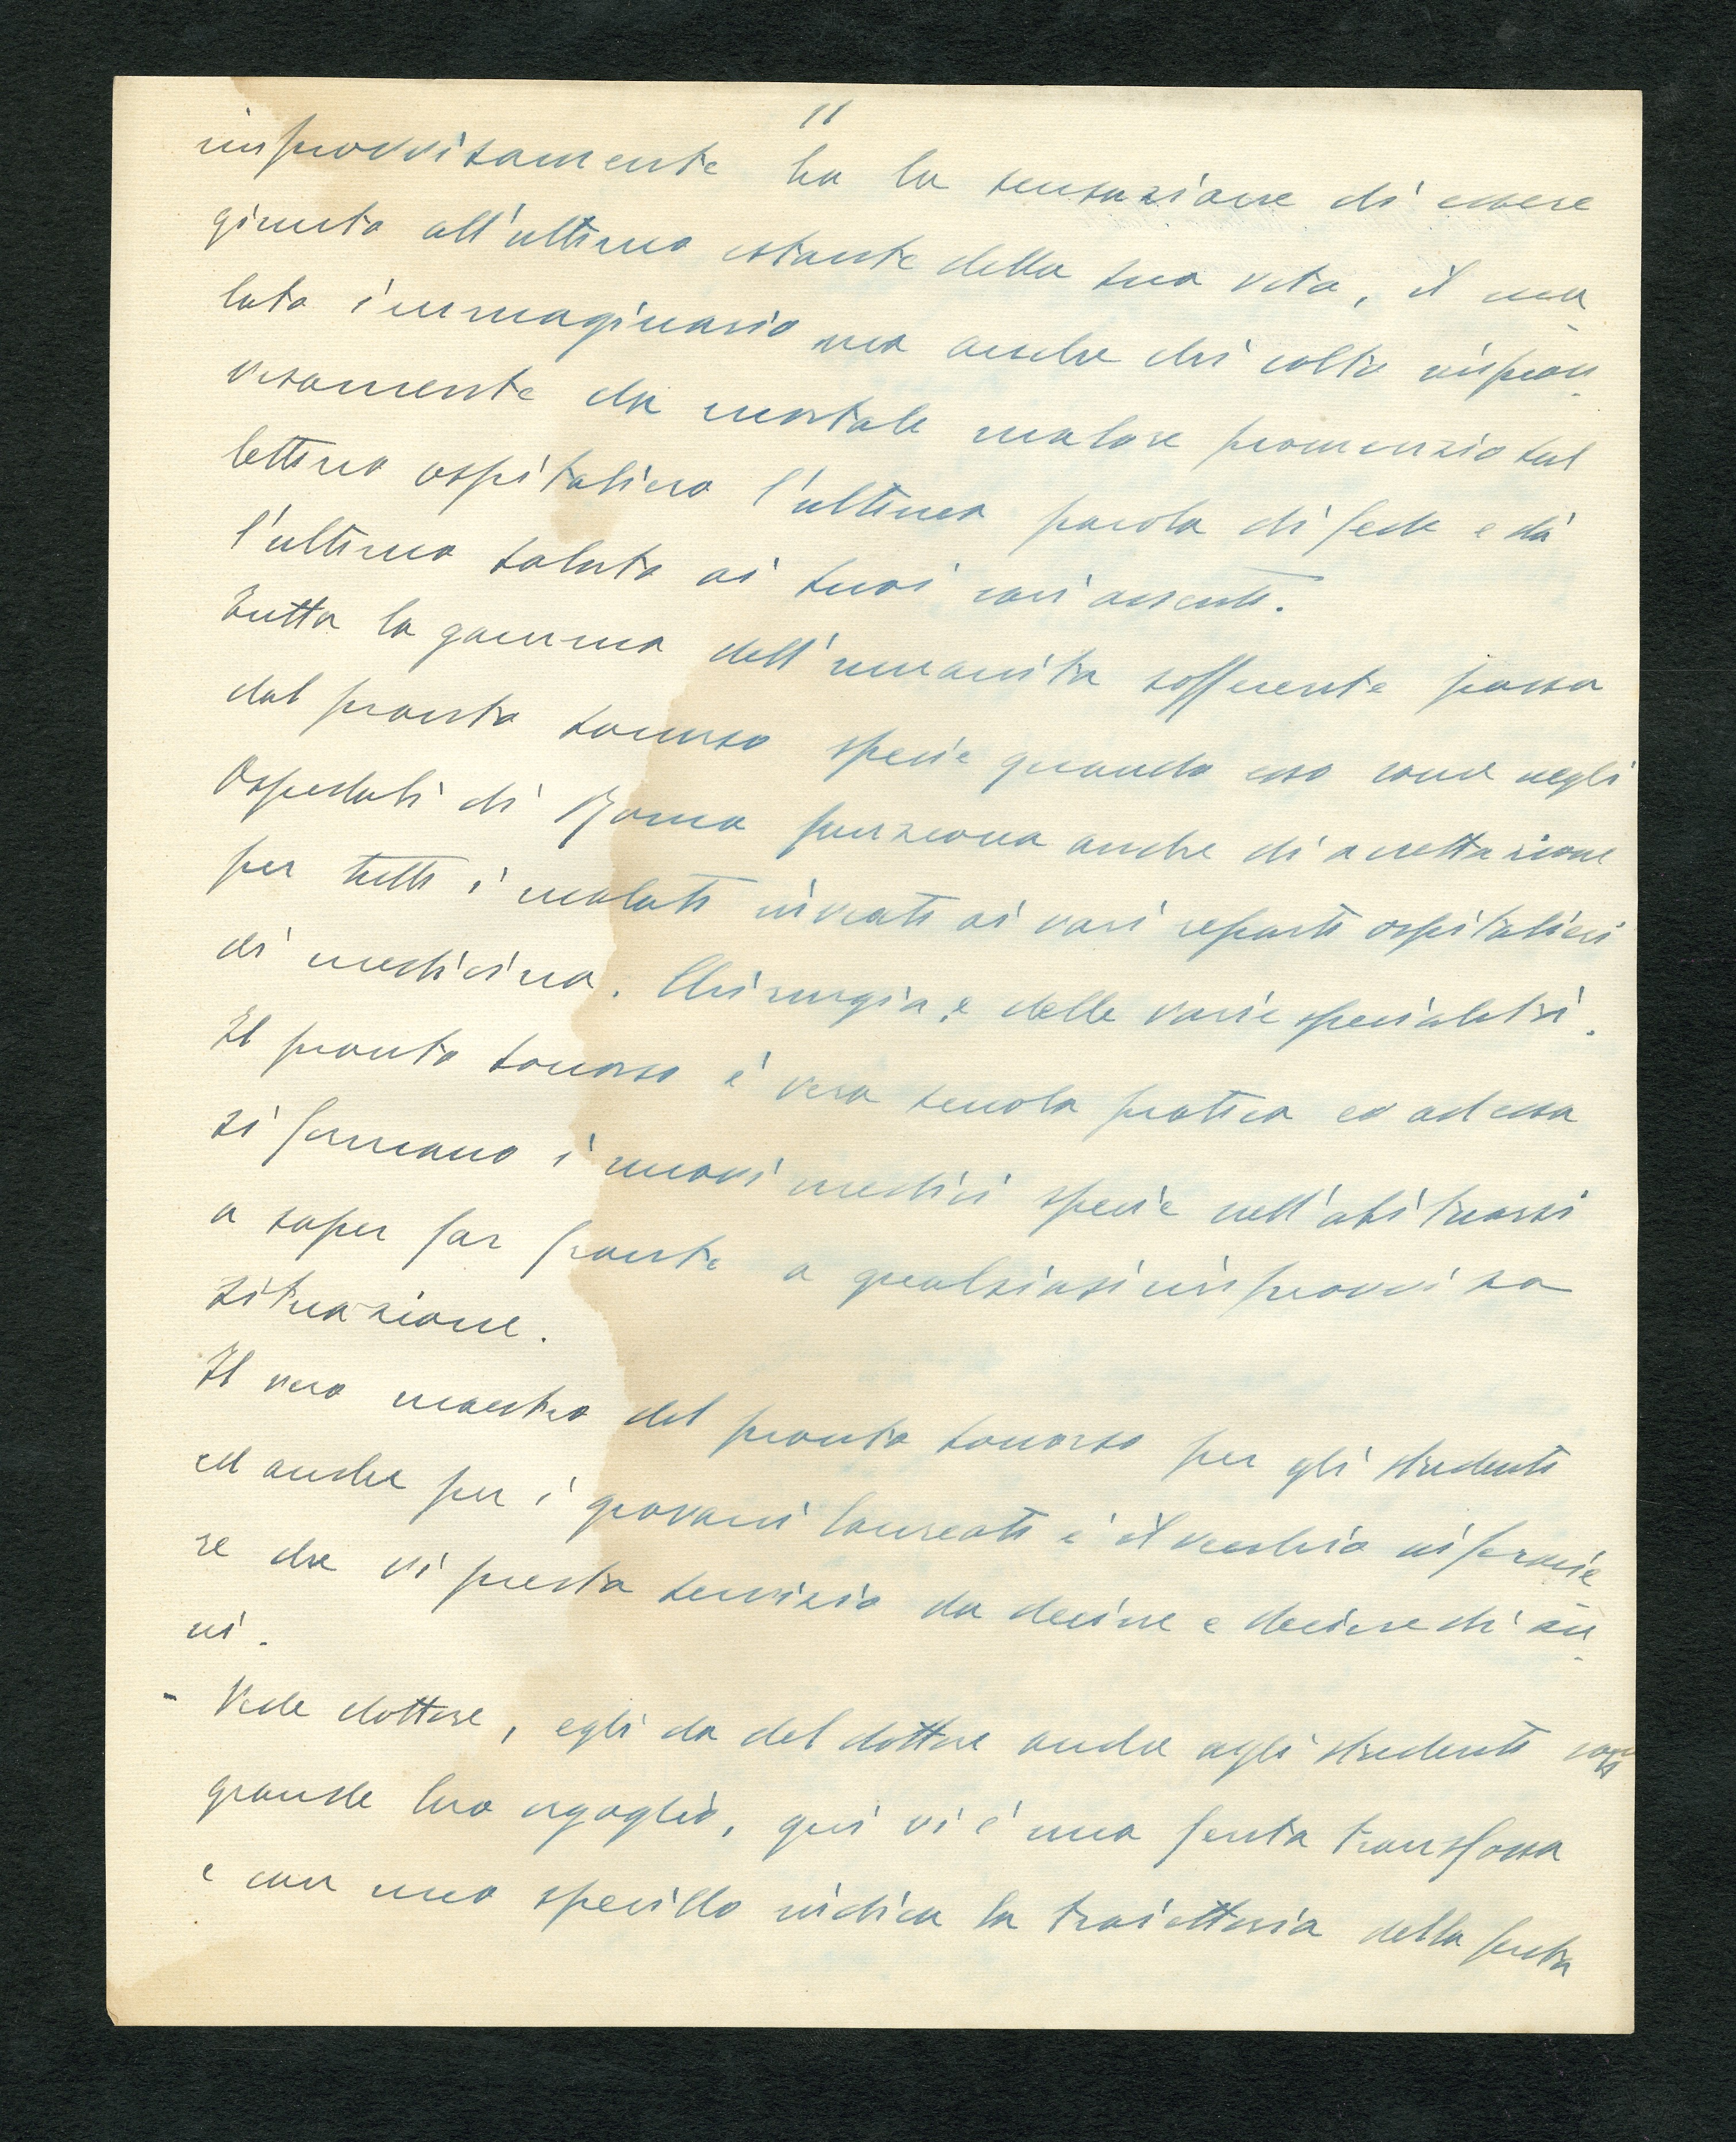 11
improvvisamente ha la sensazione di essere
giunto all'ultimo istante della sua vita, il ma-
lato immaginario ma anche chi colto improv-
visamente da mortale malore pronunzia sul
lettino ospitaliero l'ultima parola di fede e dà
l'ultimo saluto ai suoi cari assenti.
Tutta la gamma dell'umanità sofferente passa
dal pronto soccorso specie quando esso come negli
Ospedali di Roma funziona anche di accettazione
per tutti i malati inviati ai vari reparti ospitalieri
di medicina. Chirurgia, e delle varie specialità.
Il pronto soccorso è vera scuola pratica ed ad essa
si formano i nuovi medici specie nell'abituarsi
a saper far fronte a qualsiasi improvvisa
situazione.
Il vero maestro del pronto soccorso per gli studenti
ed anche per i giovani laureati è il vecchio infermie
re che vi presta servizio da decine e decine di an-
ni.
- Vede dottore, egli da del dottore anche agli studenti con
grande loro orgoglio, qui vi è una ferita transfossa
e con uno specillo indica la traiettoria della ferita